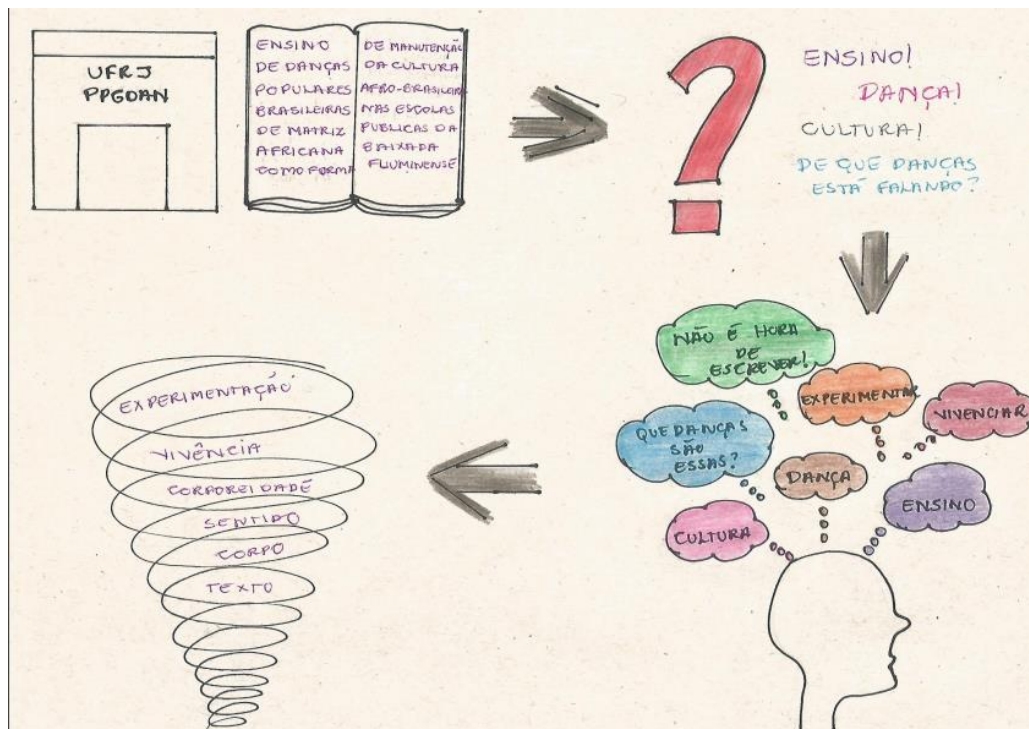 UFRJ
PPGDAN
ENSINO
DE DANÇAS
POPULARES
BRASILEIRAS
DE MATRIZ
AFRICANA
COMO FORMA
DE MANUTENÇÃO
DA CULTURA
AFRO-BRASILEIRA
NAS ESCOLAS
PUBLICAS DA
BAIXADA
FLUMINENSE
?
ENSINO!
DANÇA!
CULTURA!
DE QUE DANÇAS
ESTÁ FALANDO?
NÃO É HORA
DE
ESCREVER!
EXPERIMENTAR
VIVENCIAR
QUE DANÇAS
SÃO
ESSAS?
DANÇA
ENSINO
CULTURA
EXPERIMENTAÇÃO
VIVÊNCIA
CORPOREIDADE
SENTIDO
CORPO
TEXTO